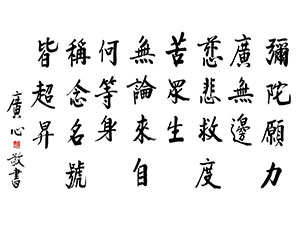 彌陀願力
廣無邊
慈悲救度
苦眾生
無論來自
何等身
稱念名號
皆超昇
廣心敬書